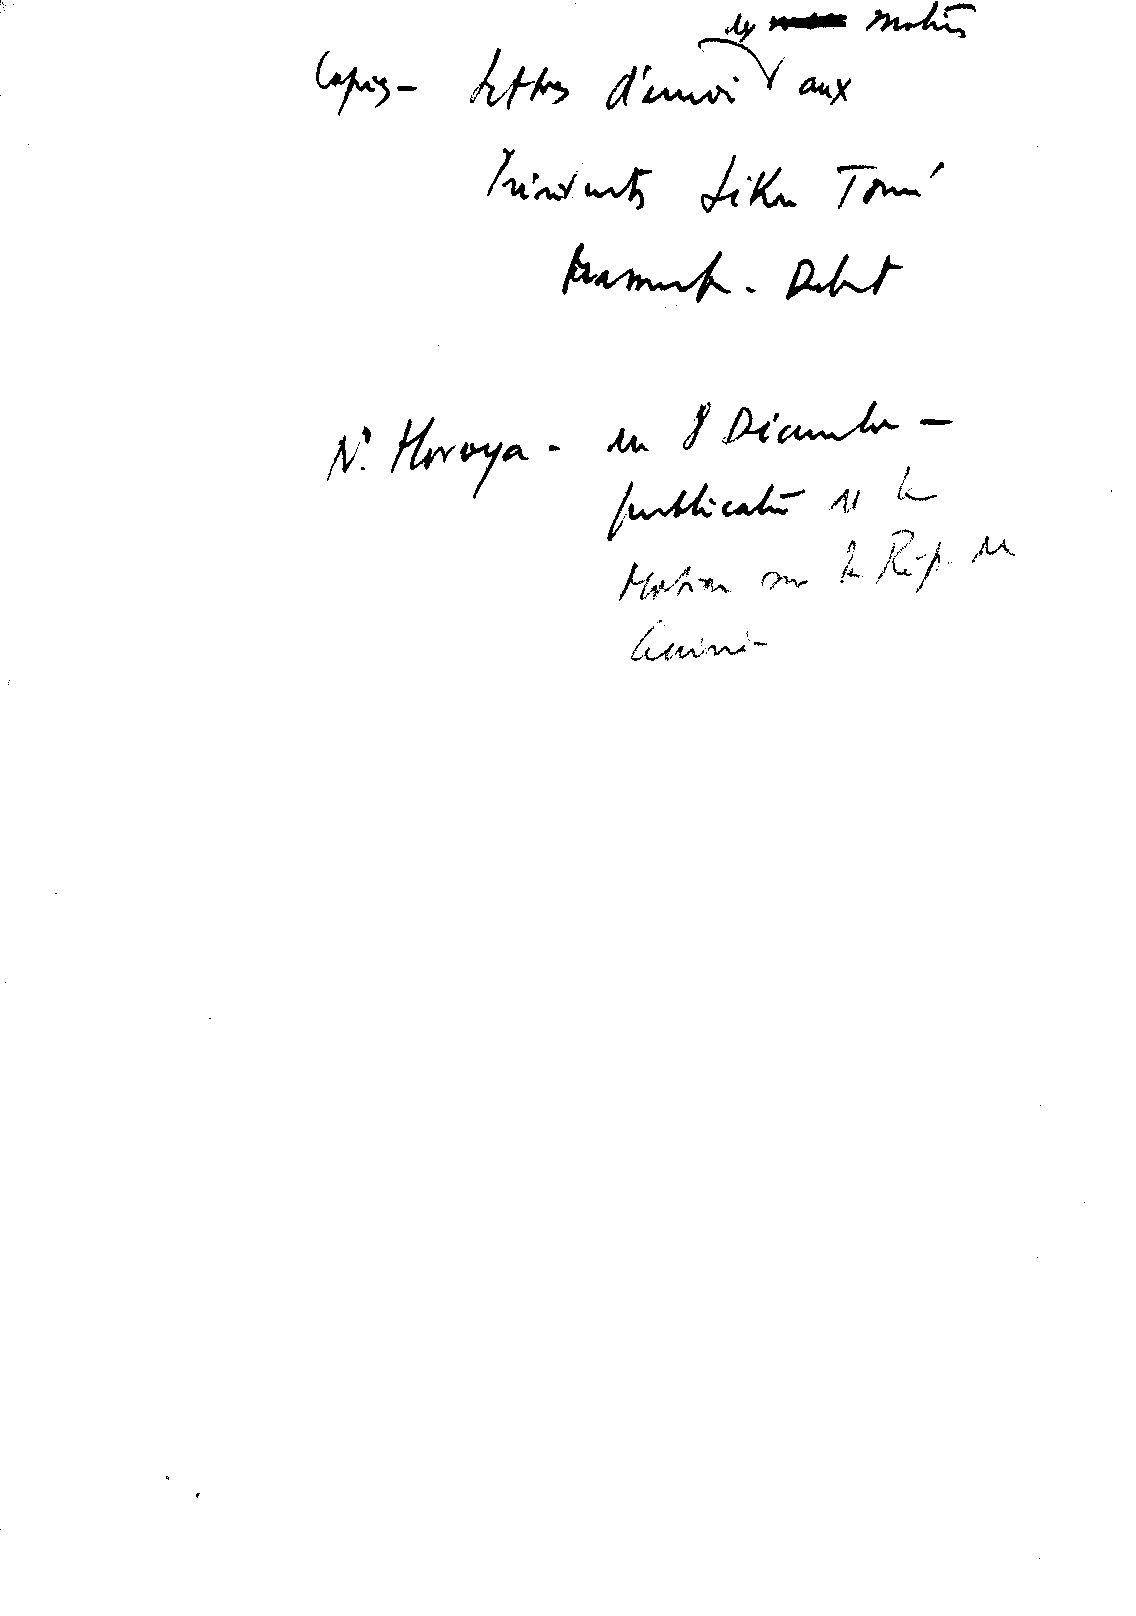 des motions
Copies - Lettres d'envoi aux
Présidents Sékou Touré
Debut
N° Horoya - du 8 Décembre -
publication de la
Motion sur la Rép. de
Guinée